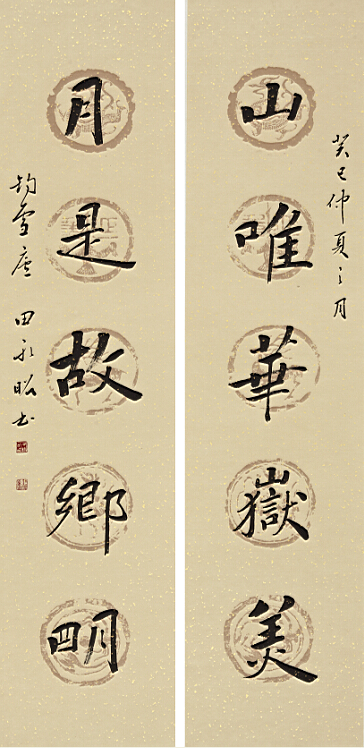 癸巳仲夏之月
山唯華嶽美
月是故鄉明
釣雪廬 田永昭书